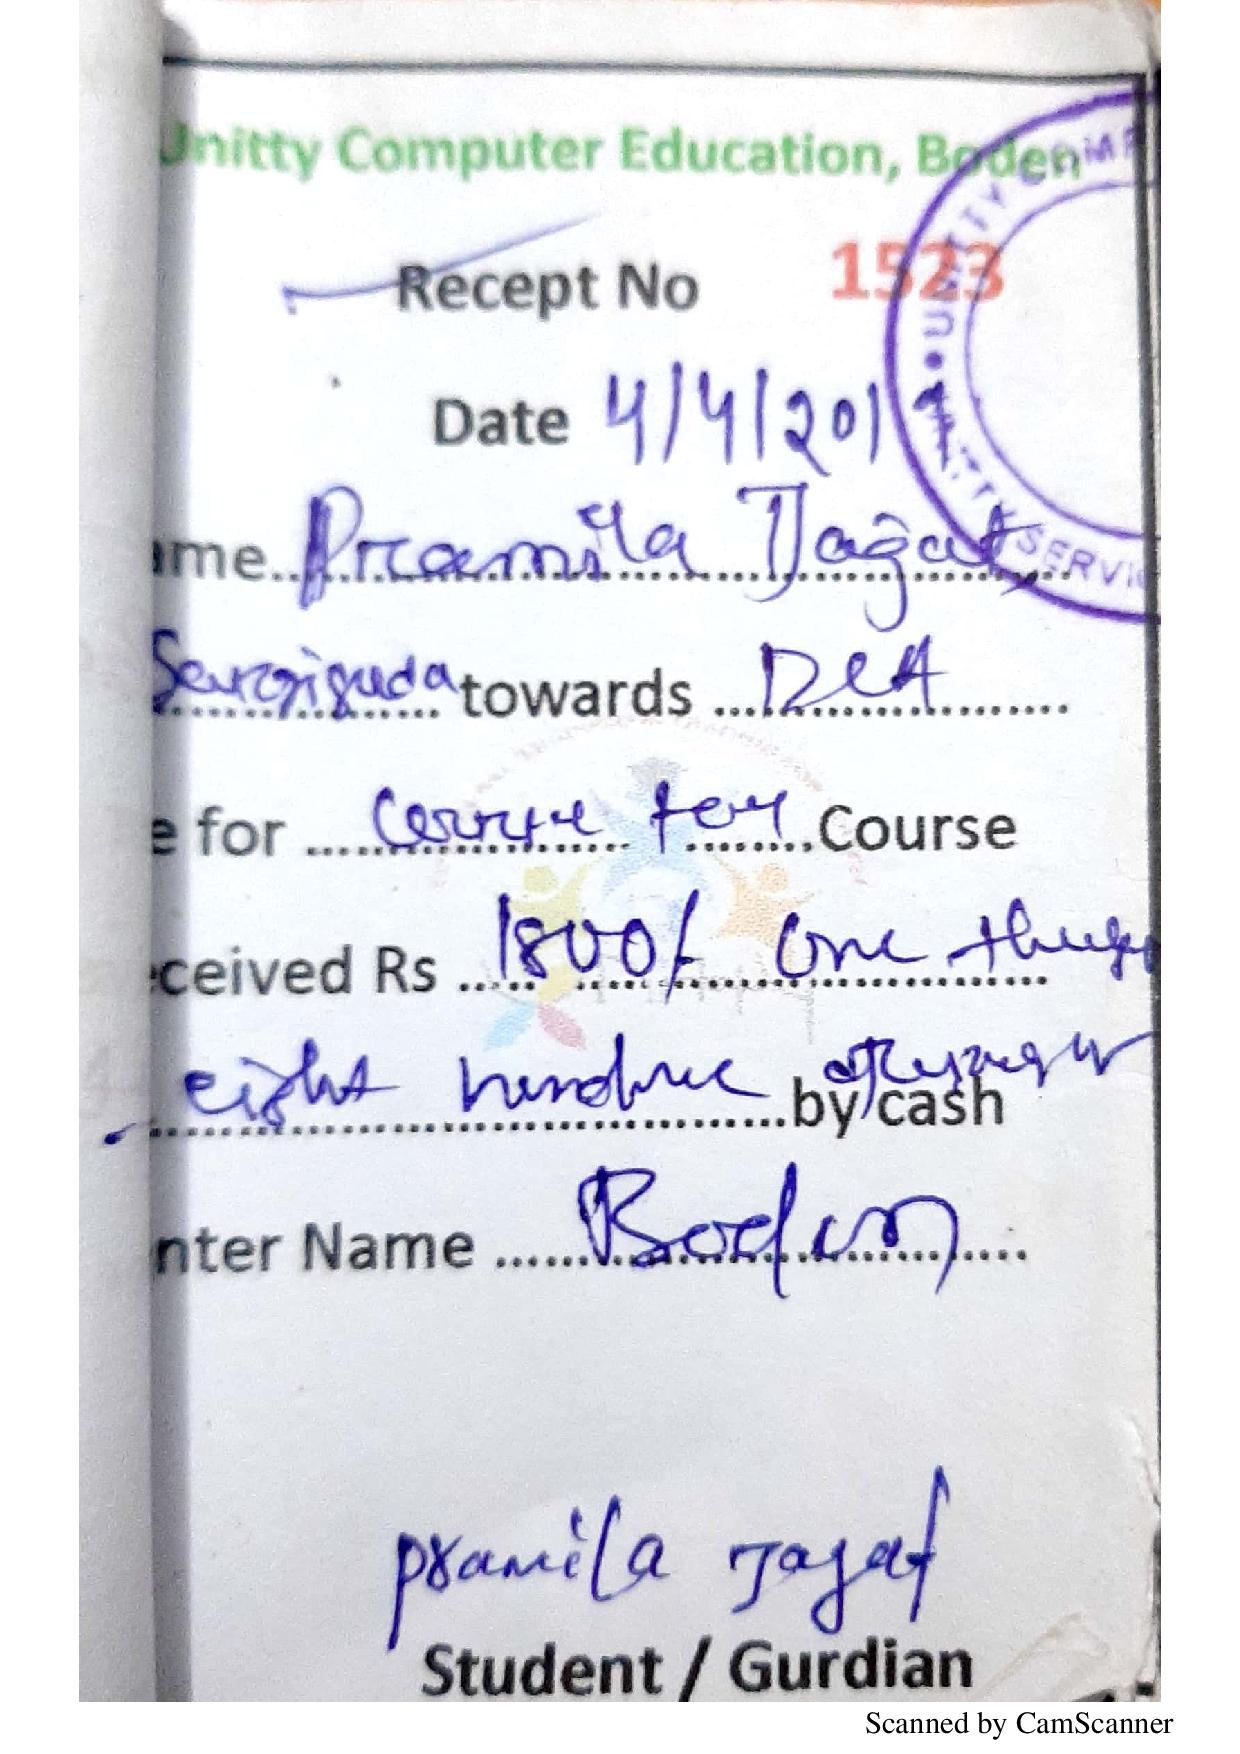 Unitty Computer Education, Boden
Recept No 1523
Date 4/4/201
ame Pramila Jagat
Sargiguda towards DCA
e for Course fey Course
ceived Rs 1800/- One
eight hundre by cash
nter Name Boden
pramila Jagat
Student / Gurdian
UNITTY COMP
SERVI
Scanned by CamScanner